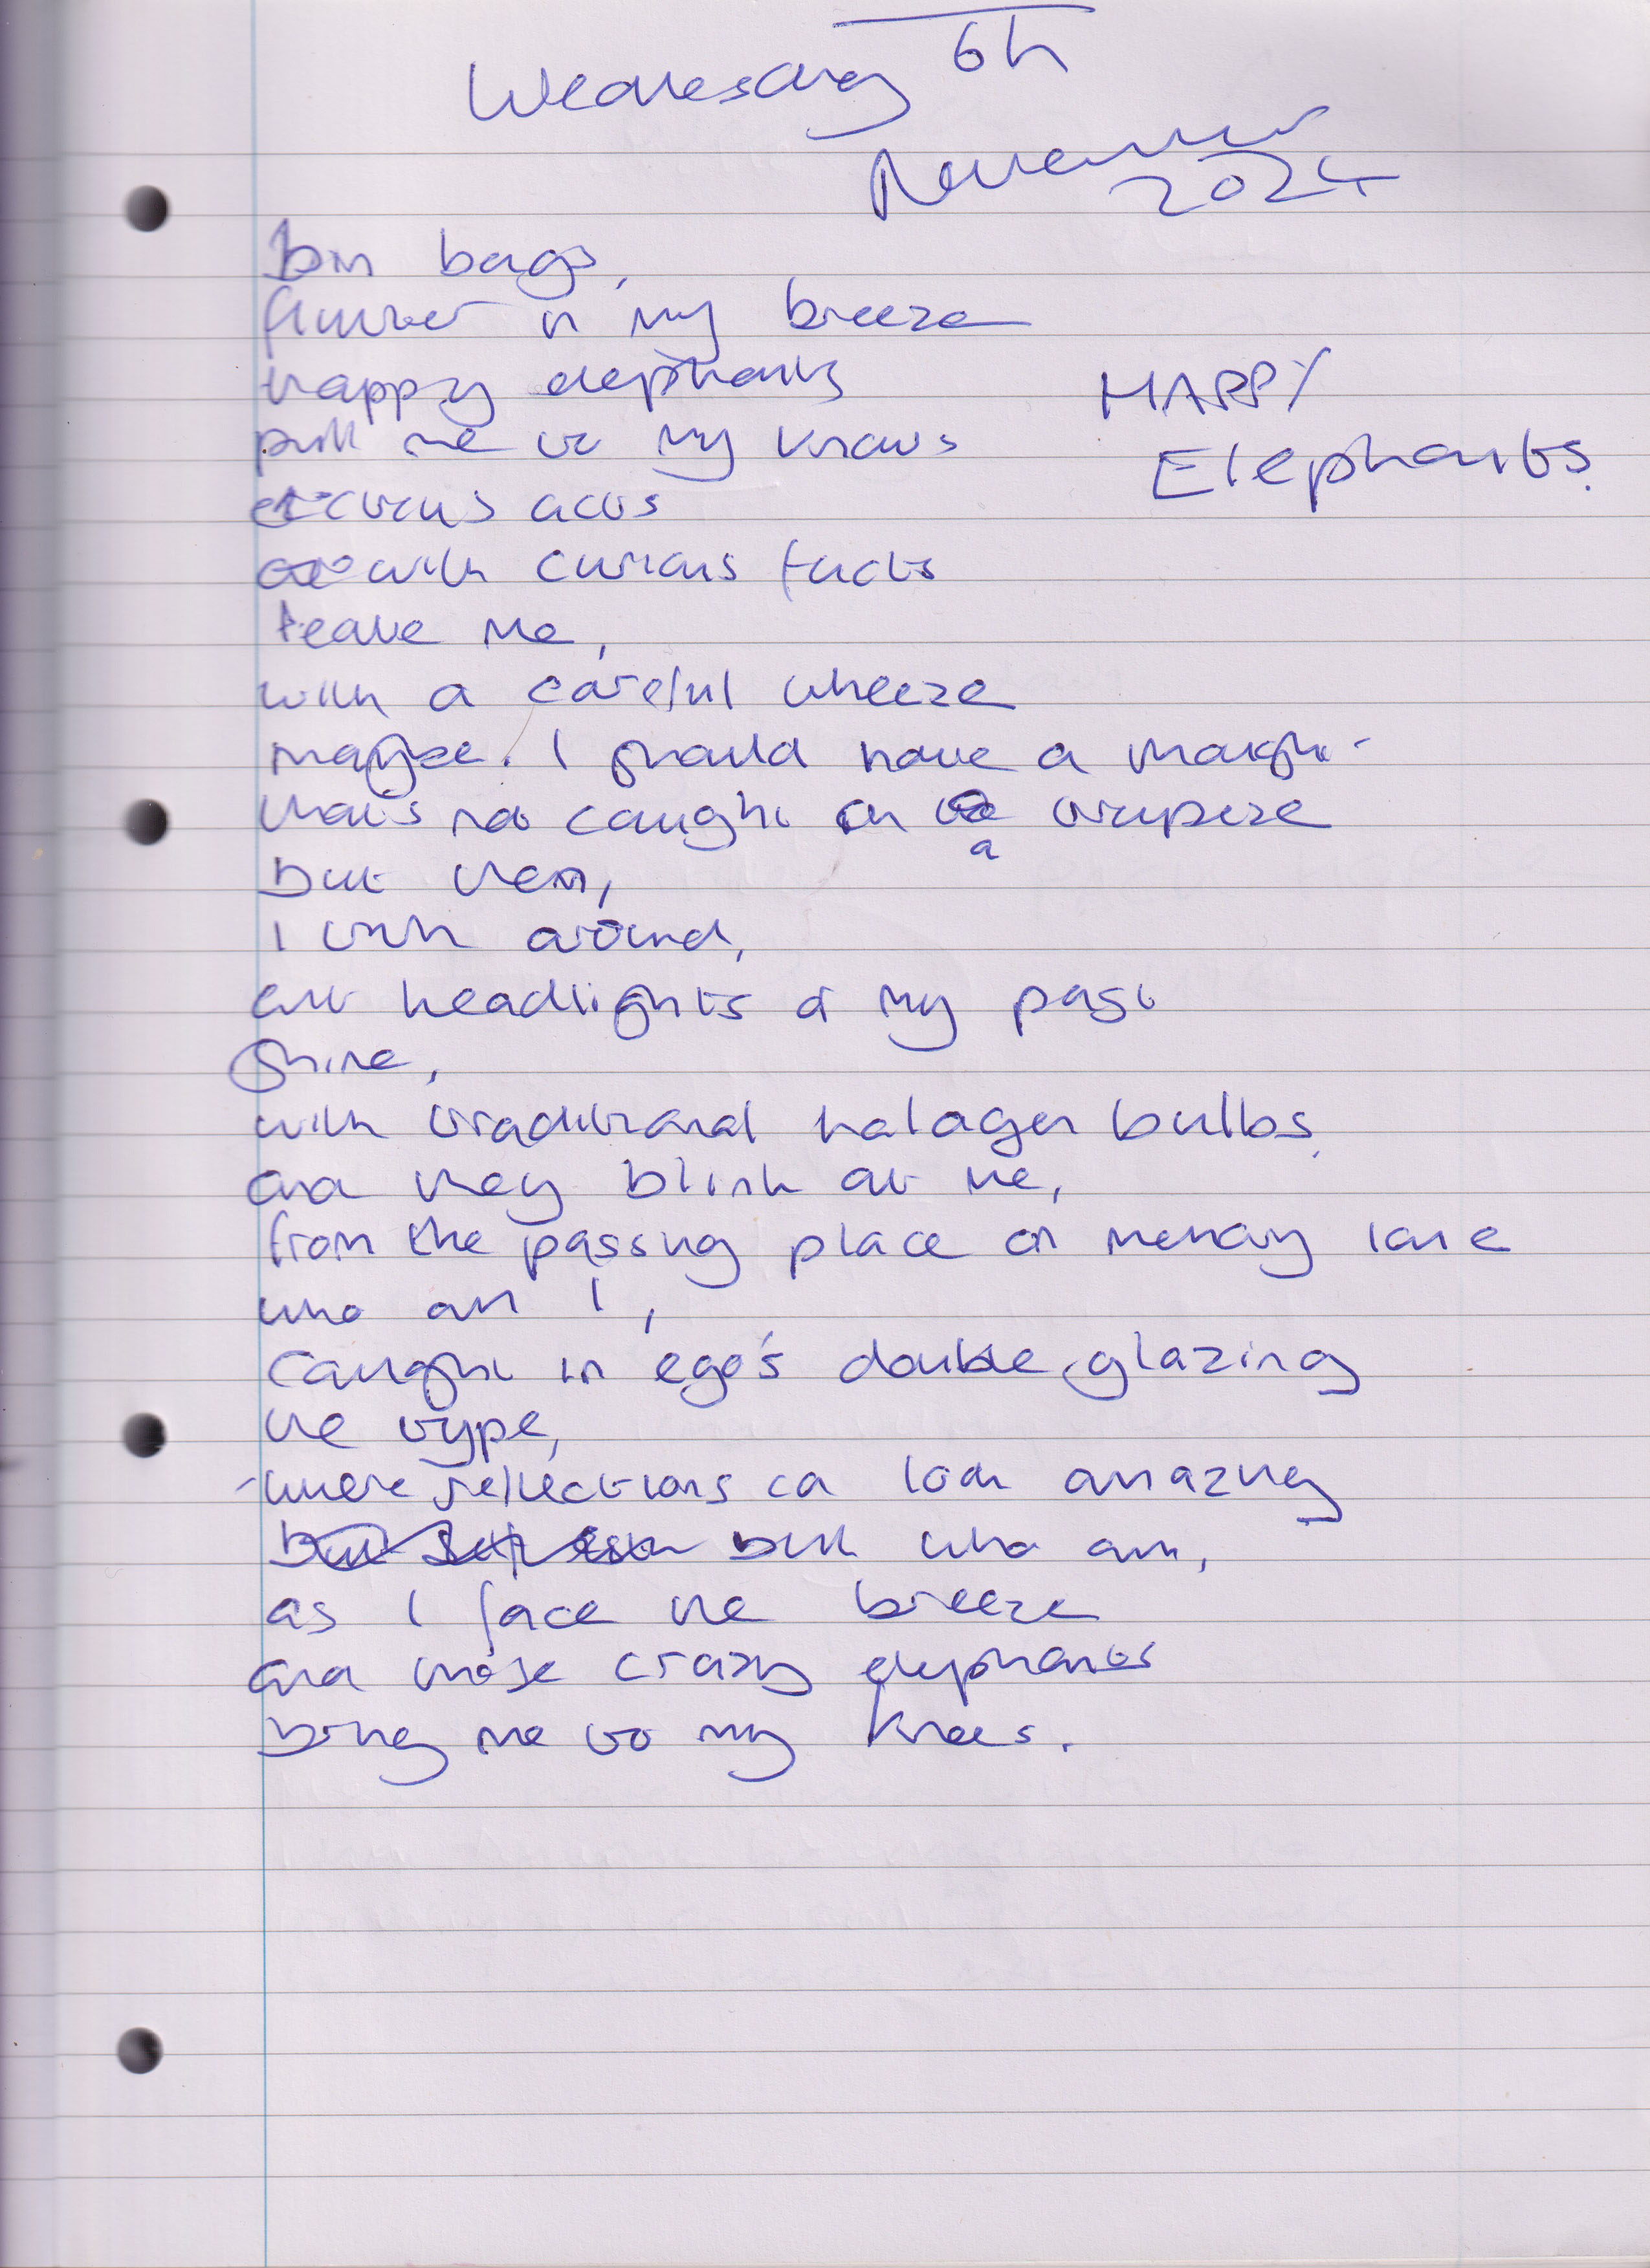 Wednesday 6th
November
2024
bin bags,
flutter in my breeze
happy elephants
HAPPY
pull me to my knees
Elephants.
circus acts
with curious facts
leave me,
with a careful wheeze
maybe. I should have a thought
that's not caught on a trapeze
but then,
I look around,
and headlights of my past
shine,
with traditional halogen bulbs,
and they blink at me,
from the passing place on memory lane
who am I,
caught in ego's double glazing
the type,
where reflections can look amazing
but who am,
as I face the breeze
and those crazy elephants
bring me to my knees.